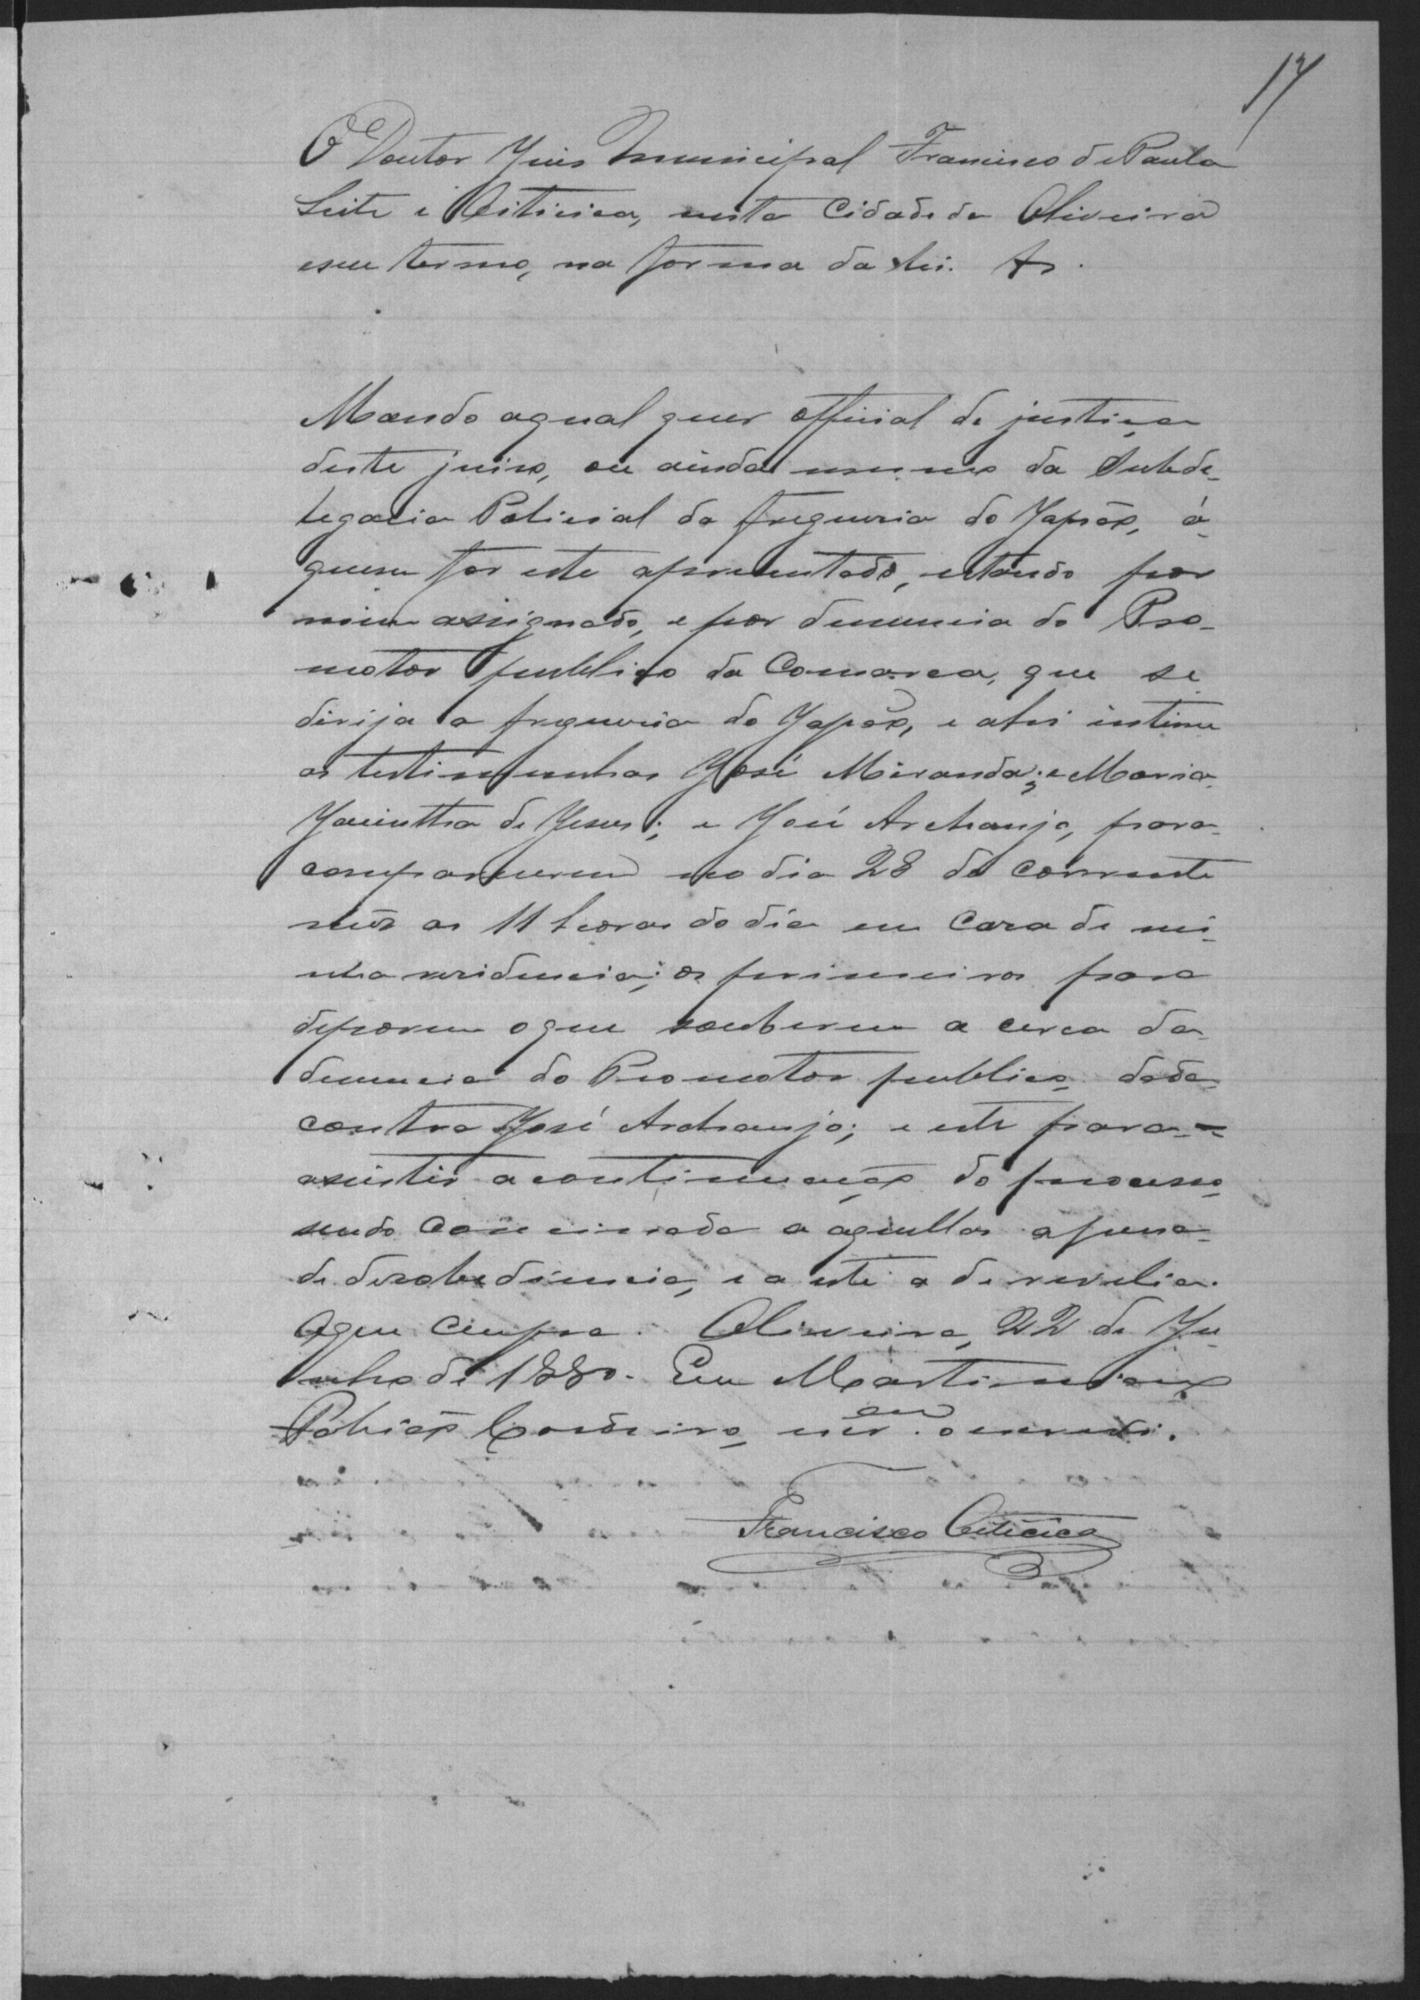 17
O Doutor Juis Municipal Francisco de Paula
Leite i Oiticica, nesta Cidade de Oliveira
eseu termo, na forma da Lei. &.
Mando aqual quer official de justiça
deste juiso, ou ainda mesmo da Subde-
legacia Policial da freguesia do Japão, á
quem for este apresentado, estando por
mim assignado, e por denuncia do Pro-
motor publico da Comarca, que se
dirija a freguesia do Japão, e ahi intime
as testimunhas José Miranda; e Maria
Jacintha de Jesus; e José Archanjo, para
comparecerem no dia 28 do corrente
mês as 11 horas do dia em casa de mi-
nha residencia; os primeiros para
deporem oque souberem a cerca da
denuncia do Promotor publico dada
contra José Archanjo; e este para
assistir a continuação do processo,
sendo comminada a aquellas a pena
de desobediencia, e a este a de revelia.
Oque cumpra. Oliveira, 22 de Ju-
nho de 1880. Eu Martiniano
Cordeiro, o escrevi.
Francisco Oiticica